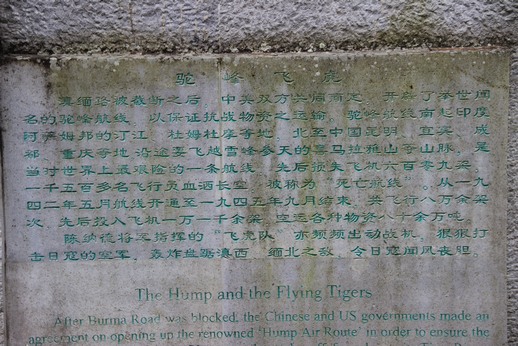 驼峰飞虎
滇缅路被截断之后，中美双方共同商定，开辟了举世闻
名的驼峰航线，以保证抗战物资之运输。驼峰航线南起印度
阿萨姆邦的汀江、杜姆杜摩等地，北至中国昆明、宜宾、成
都、重庆等地，沿途要飞越雪峰参天的喜马拉雅山等山脉，是
当时世界上最艰险的一条航线，先后损失飞机六百零九架，
一千五百多名飞行员血洒长空，被称为“死亡航线”。从一九
四二年五月航线开通至一九四五年九月结束，共飞行八万余架
次，先后投入飞机一万一千余架，空运各种物资八十余万吨。
陈纳德将军指挥的“飞虎队”亦频频出动战机，狠狠打
击日寇的空军，轰炸盘踞滇西、缅北之敌，令日寇闻风丧胆。
The Hump and the Flying Tigers
After Burma Road was blocked, the Chinese and US governments made an
agreement on opening up the renowned ‘Hump Air Route’ in order to ensure the